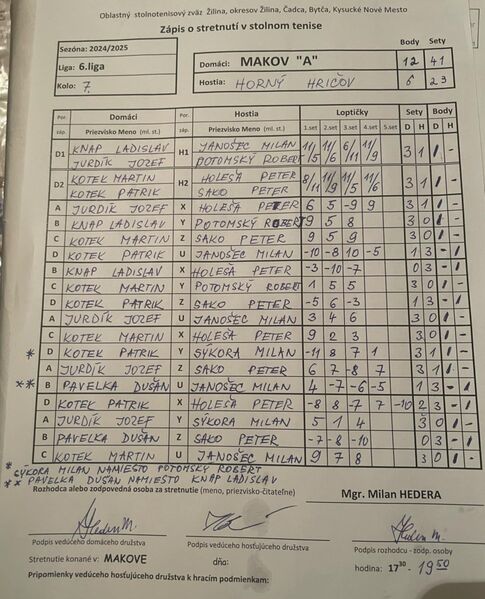 Oblastný stolnotenisový zväz Žilina, okresov Žilina, Čadca, Bytča, Kysucké Nové Mesto
Zápis o stretnutí v stolnom tenise
Body Sety
Sezóna: 2024/2025
Liga: 6.liga
Kolo: 7.
Domáci: MAKOV "A" 12 41
Hostia: HORNÝ HRIČOV 6 23
Por. Domáci Por. Hostia Loptičky Sety Body
záp. Priezvisko Meno (ml. st.) záp. Priezvisko Meno (ml. st.) 1.set 2.set 3.set 4.set 5.set D H D H
D1 KNAP LADISLAV H1 JANOŠEC MILAN 11/5 11/6 6/11 11/9 3 1 1 -
JURDÍK JOZEF POTOMSKÝ ROBERT
D2 KOTEK MARTIN H2 HOLEŠA PETER 8/11 11/9 11/5 11/6 3 1 1 -
KOTEK PATRIK SAKO PETER
A JURDÍK JOZEF X HOLEŠA PETER 6 5 -9 9 3 1 1 -
B KNAP LADISLAV Y POTOMSKÝ ROBERT 9 5 8 3 0 1 -
C KOTEK MARTIN Z SAKO PETER 9 5 9 3 0 1 -
D KOTEK PATRIK U JANOŠEC MILAN -10 -8 10 -5 1 3 - 1
B KNAP LADISLAV X HOLEŠA PETER -3 -10 -7 0 3 - 1
C KOTEK MARTIN Y POTOMSKÝ ROBERT 1 5 5 3 0 1 -
D KOTEK PATRIK Z SAKO PETER -5 6 -3 1 3 - 1
A JURDÍK JOZEF U JANOŠEC MILAN 3 4 6 3 0 1 -
C KOTEK MARTIN X HOLEŠA PETER 9 2 3 3 0 1 -
* D KOTEK PATRIK Y SÝKORA MILAN -11 8 7 1 3 1 1 -
A JURDÍK JOZEF Z SAKO PETER 6 7 -8 7 3 1 1 -
** B PAVELKA DUŠAN U JANOŠEC MILAN 4 -7 -6 -5 1 3 - 1
D KOTEK PATRIK X HOLEŠA PETER -8 8 -7 7 -10 2 3 - 1
A JURDÍK JOZEF Y SÝKORA MILAN 5 1 4 3 0 1 -
B PAVELKA DUŠAN Z SAKO PETER -7 -8 -10 0 3 - 1
C KOTEK MARTIN U JANOŠEC MILAN 9 7 8 3 0 1 -
* SÝKORA MILAN NAMIESTO POTOMSKÝ ROBERT
** PAVELKA DUŠAN NAMIESTO KNAP LADISLAV
Rozhodca alebo zodpovedná osoba za stretnutie (meno, priezvisko-čitateľne) Mgr. Milan HEDERA
Podpis vedúceho domáceho družstva Podpis vedúceho hosťujúceho družstva Podpis rozhodcu - zodp. osoby
Stretnutie konané v: MAKOVE dňa: hodina: 17³⁰ - 19⁵⁰
Pripomienky vedúceho hosťujúceho družstva k hracím podmienkam: